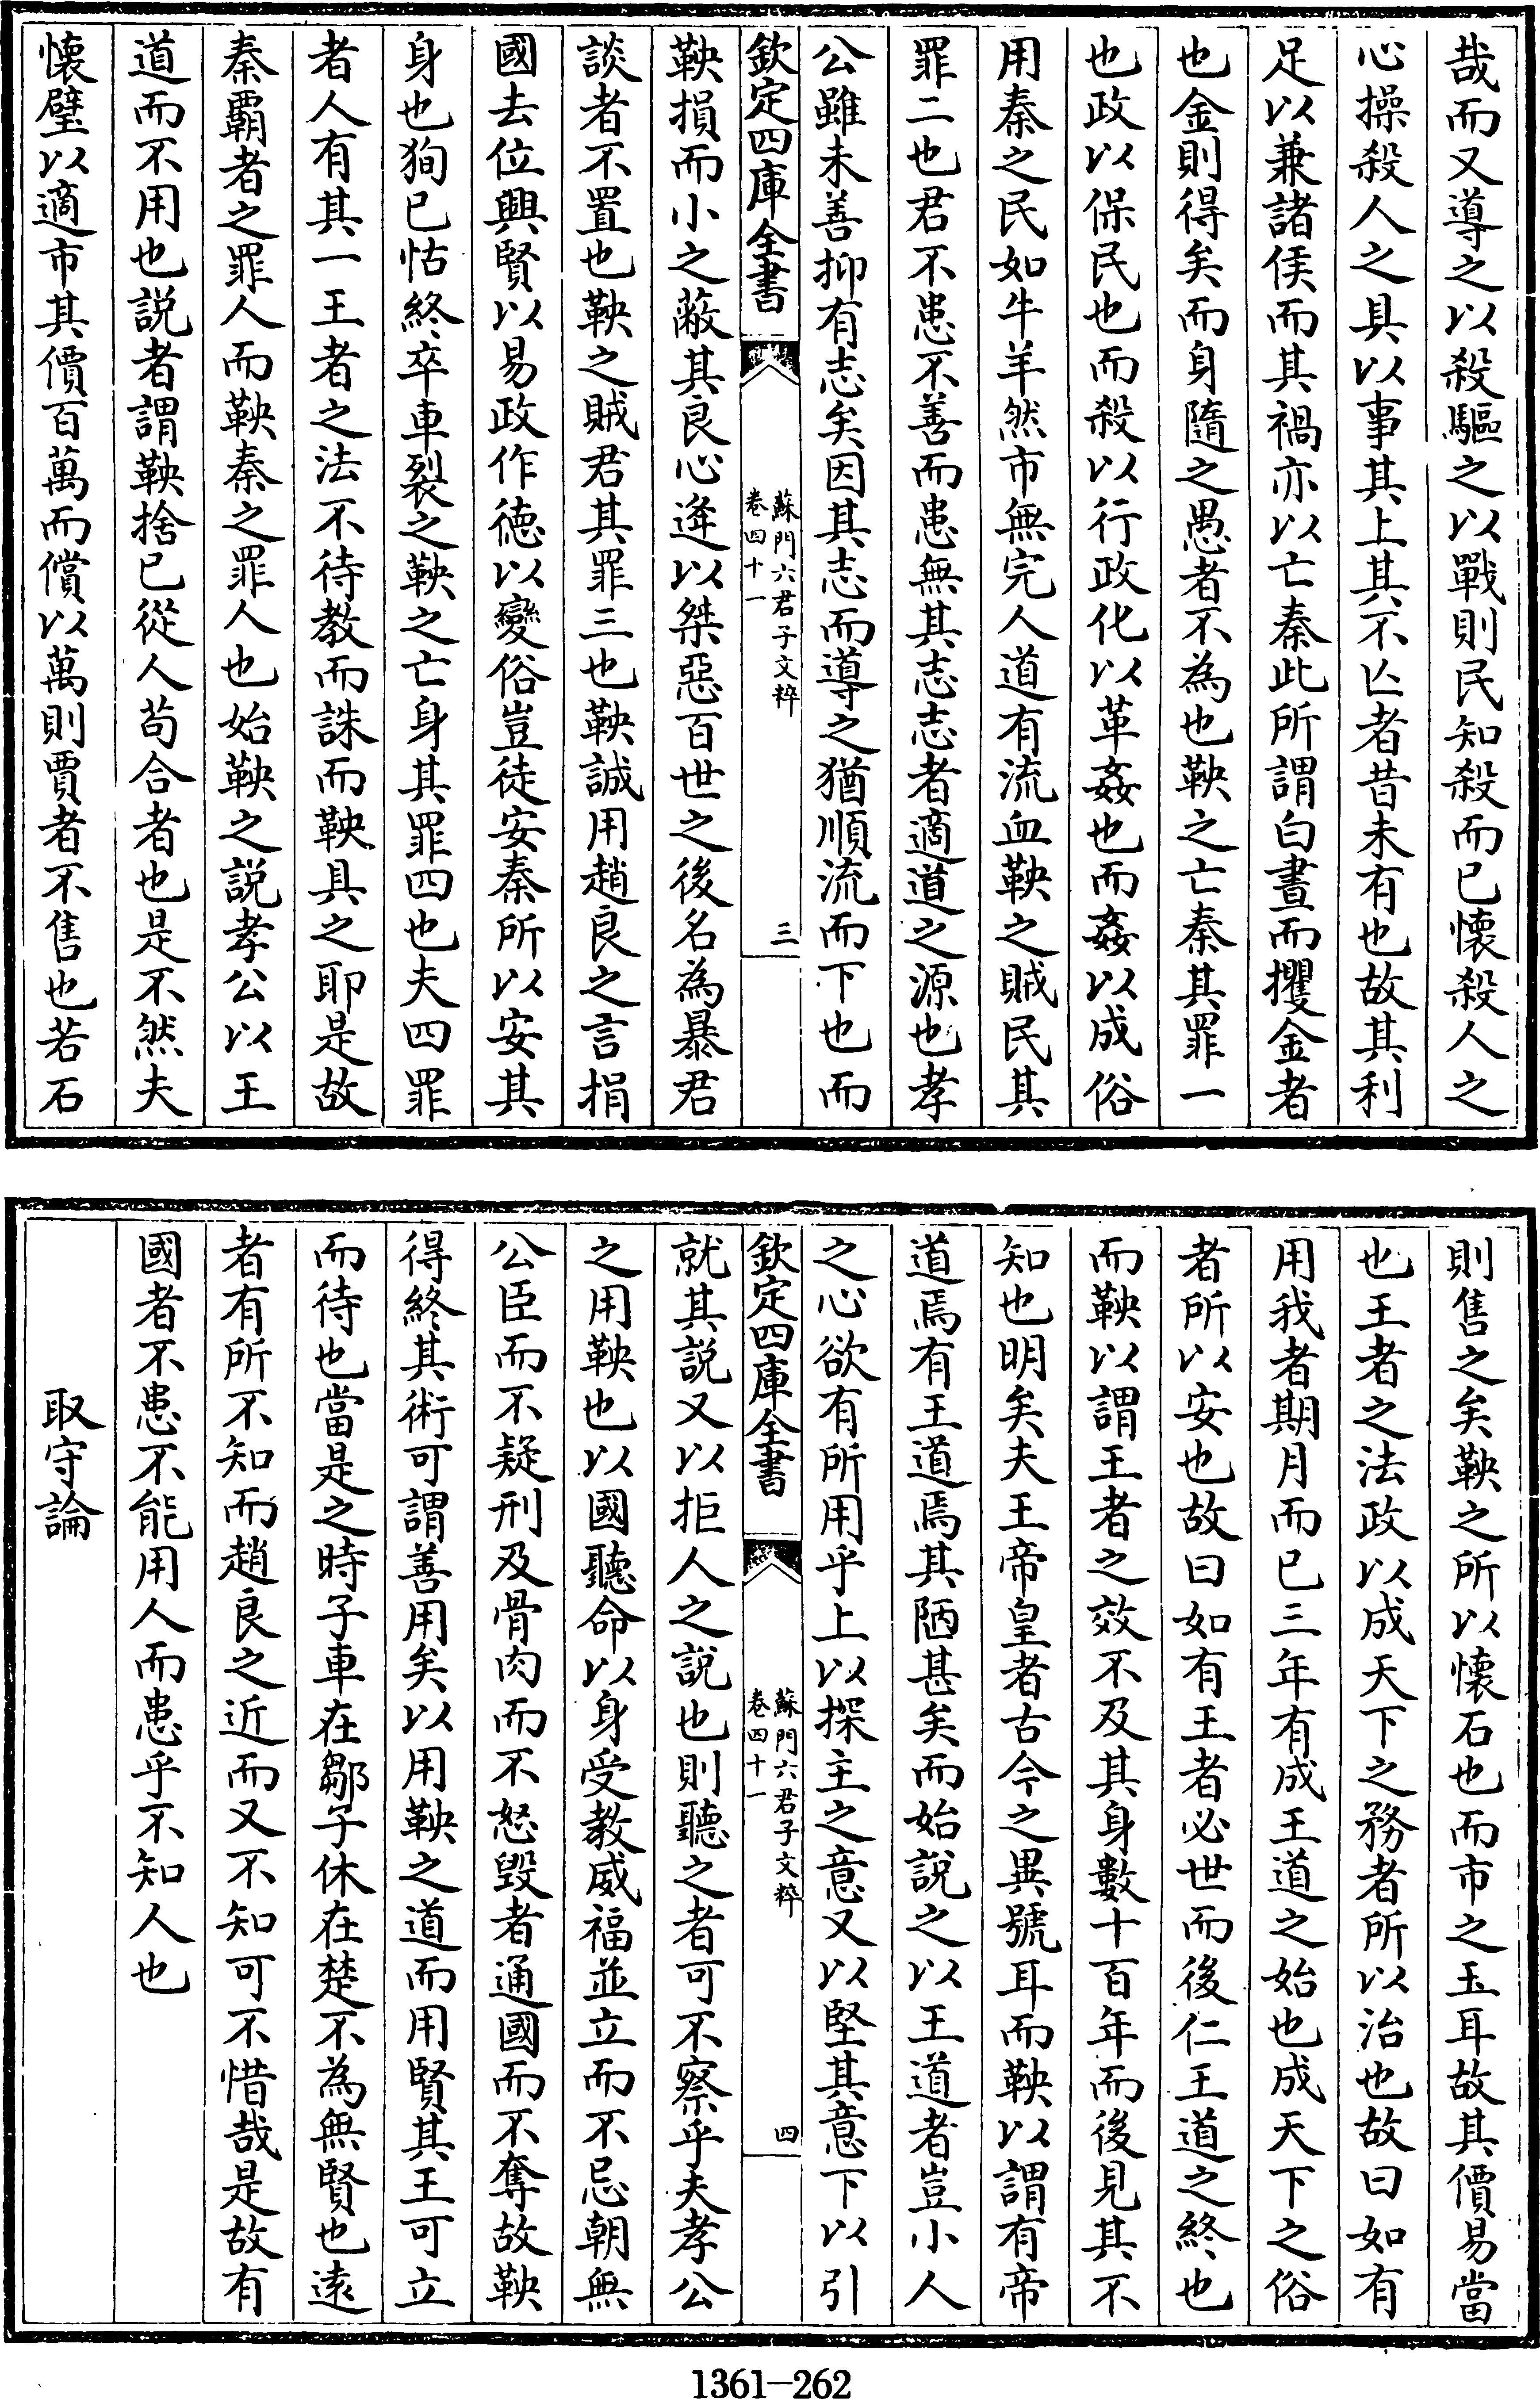 哉而又導之以殺驅之以戰則民知殺而已懷殺人之
心操殺人之具以事其上其不亾者昔未有也故其利
足以兼諸侯而其禍亦以亡秦此所謂白晝而攫金者
也金則得矣而身隨之愚者不為也鞅之亡秦其罪一
也政以保民也而殺以行政化以革姦也而姦以成俗
用秦之民如牛羊然市無完人道有流血鞅之賊民其
罪二也君不患不善而患無其志志者適道之源也孝
公雖未善抑有志矣因其志而導之猶順流而下也而
欽定四庫全書
蘇門六君子文粹
卷四十一
三
鞅損而小之蔽其良心逄以桀惡百世之後名為暴君
談者不置也鞅之賊君其罪三也鞅誠用趙良之言捐
國去位興賢以易政作德以變俗豈徒安秦所以安其
身也狥已怙終卒車裂之鞅之亡身其罪四也夫四罪
者人有其一王者之法不待教而誅而鞅具之耶是故
秦霸者之罪人而鞅秦之罪人也始鞅之説孝公以王
道而不用也説者謂鞅捨已從人苟合者也是不然夫
懷璧以適市其價百萬而償以萬則賈者不售也若石
則售之矣鞅之所以懷石也而市之玉耳故其價易當
也王者之法政以成天下之務者所以治也故曰如有
用我者期月而已三年有成王道之始也成天下之俗
者所以安也故曰如有王者必世而後仁王道之終也
而鞅以謂王者之效不及其身數十百年而後見其不
知也明矣夫王帝皇者古今之異號耳而鞅以謂有帝
道焉有王道焉其陋甚矣而始説之以王道者豈小人
之心欲有所用乎上以探主之意又以堅其意下以引
欽定四庫全書
蘇門六君子文粹
卷四十一
四
就其説又以拒人之説也則聽之者可不察乎夫孝公
之用鞅也以國聽命以身受教威福並立而不忌朝無
公臣而不疑刑及骨肉而不怒毀者通國而不奪故鞅
得終其術可謂善用矣以用鞅之道而用賢其王可立
而待也當是之時子車在鄒子休在楚不為無賢也遠
者有所不知而趙良之近而又不知可不惜哉是故有
國者不患不能用人而患乎不知人也
取守論
1361-262